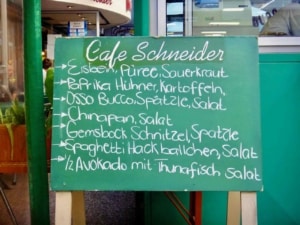 Cafe Schneider
Eisbein, Püree, Sauerkraut
Paprika Hühner, Kartoffeln,
Osso Bucco, Spätzle, Salat
Chinapan, Salat
Gemsbock Schnitzel, Spätzle
Spaghetti Hackbällchen, Salat
1/2 Avokado mit Thunafisch Salat